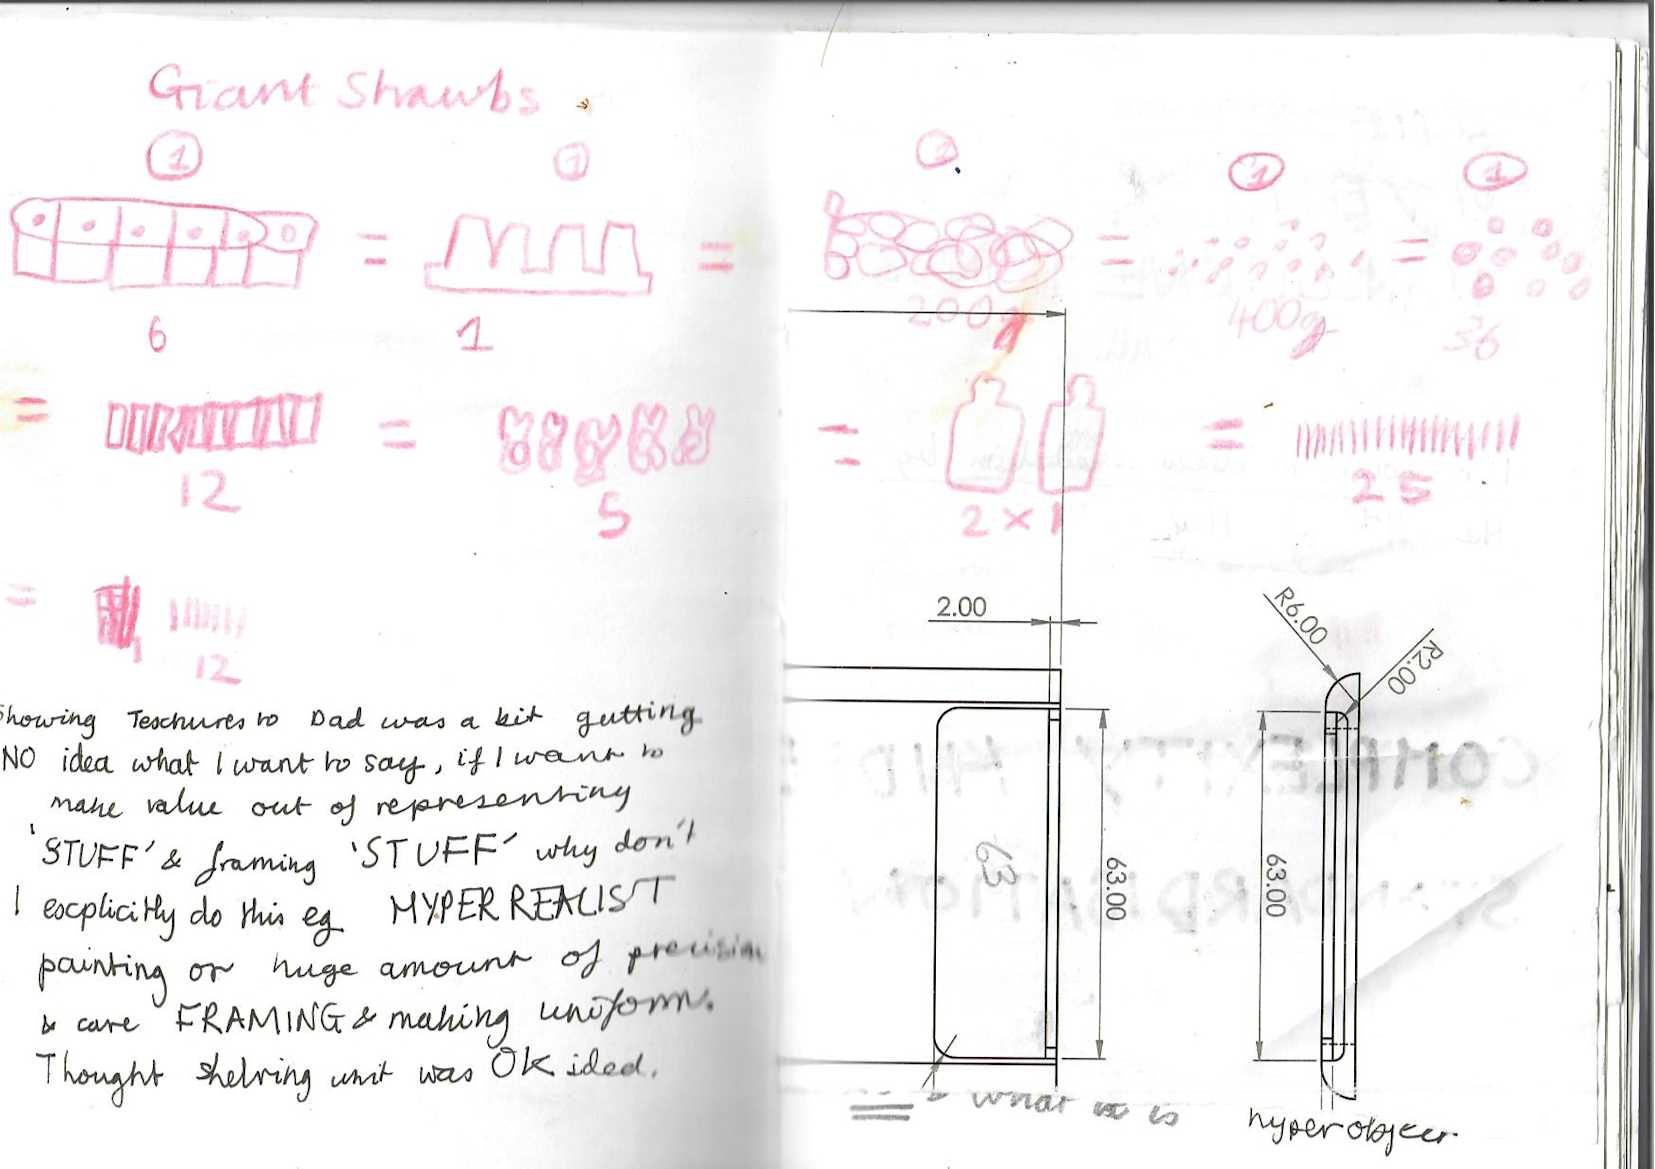 Giant Strawbs
1 1
6 1
12 5
1 12
Showing Teschures to Dad was a bit gutting
NO idea what I want to say, if I want to
make value out of representiny
'STUFF' & framing 'STUFF' why don't
I escplicitly do this eg HYPER REALIST
painting or huge amount of precision
& care FRAMING & making uniform.
Thought shelving unit was OK idea.
1 1 1
200g 400g 36
2 x 1 25
2.00 R6.00 R2.00
63 63.00 63.00
COMPLEXITY HIDE
STANDARDISATION
what it is
hyper object.